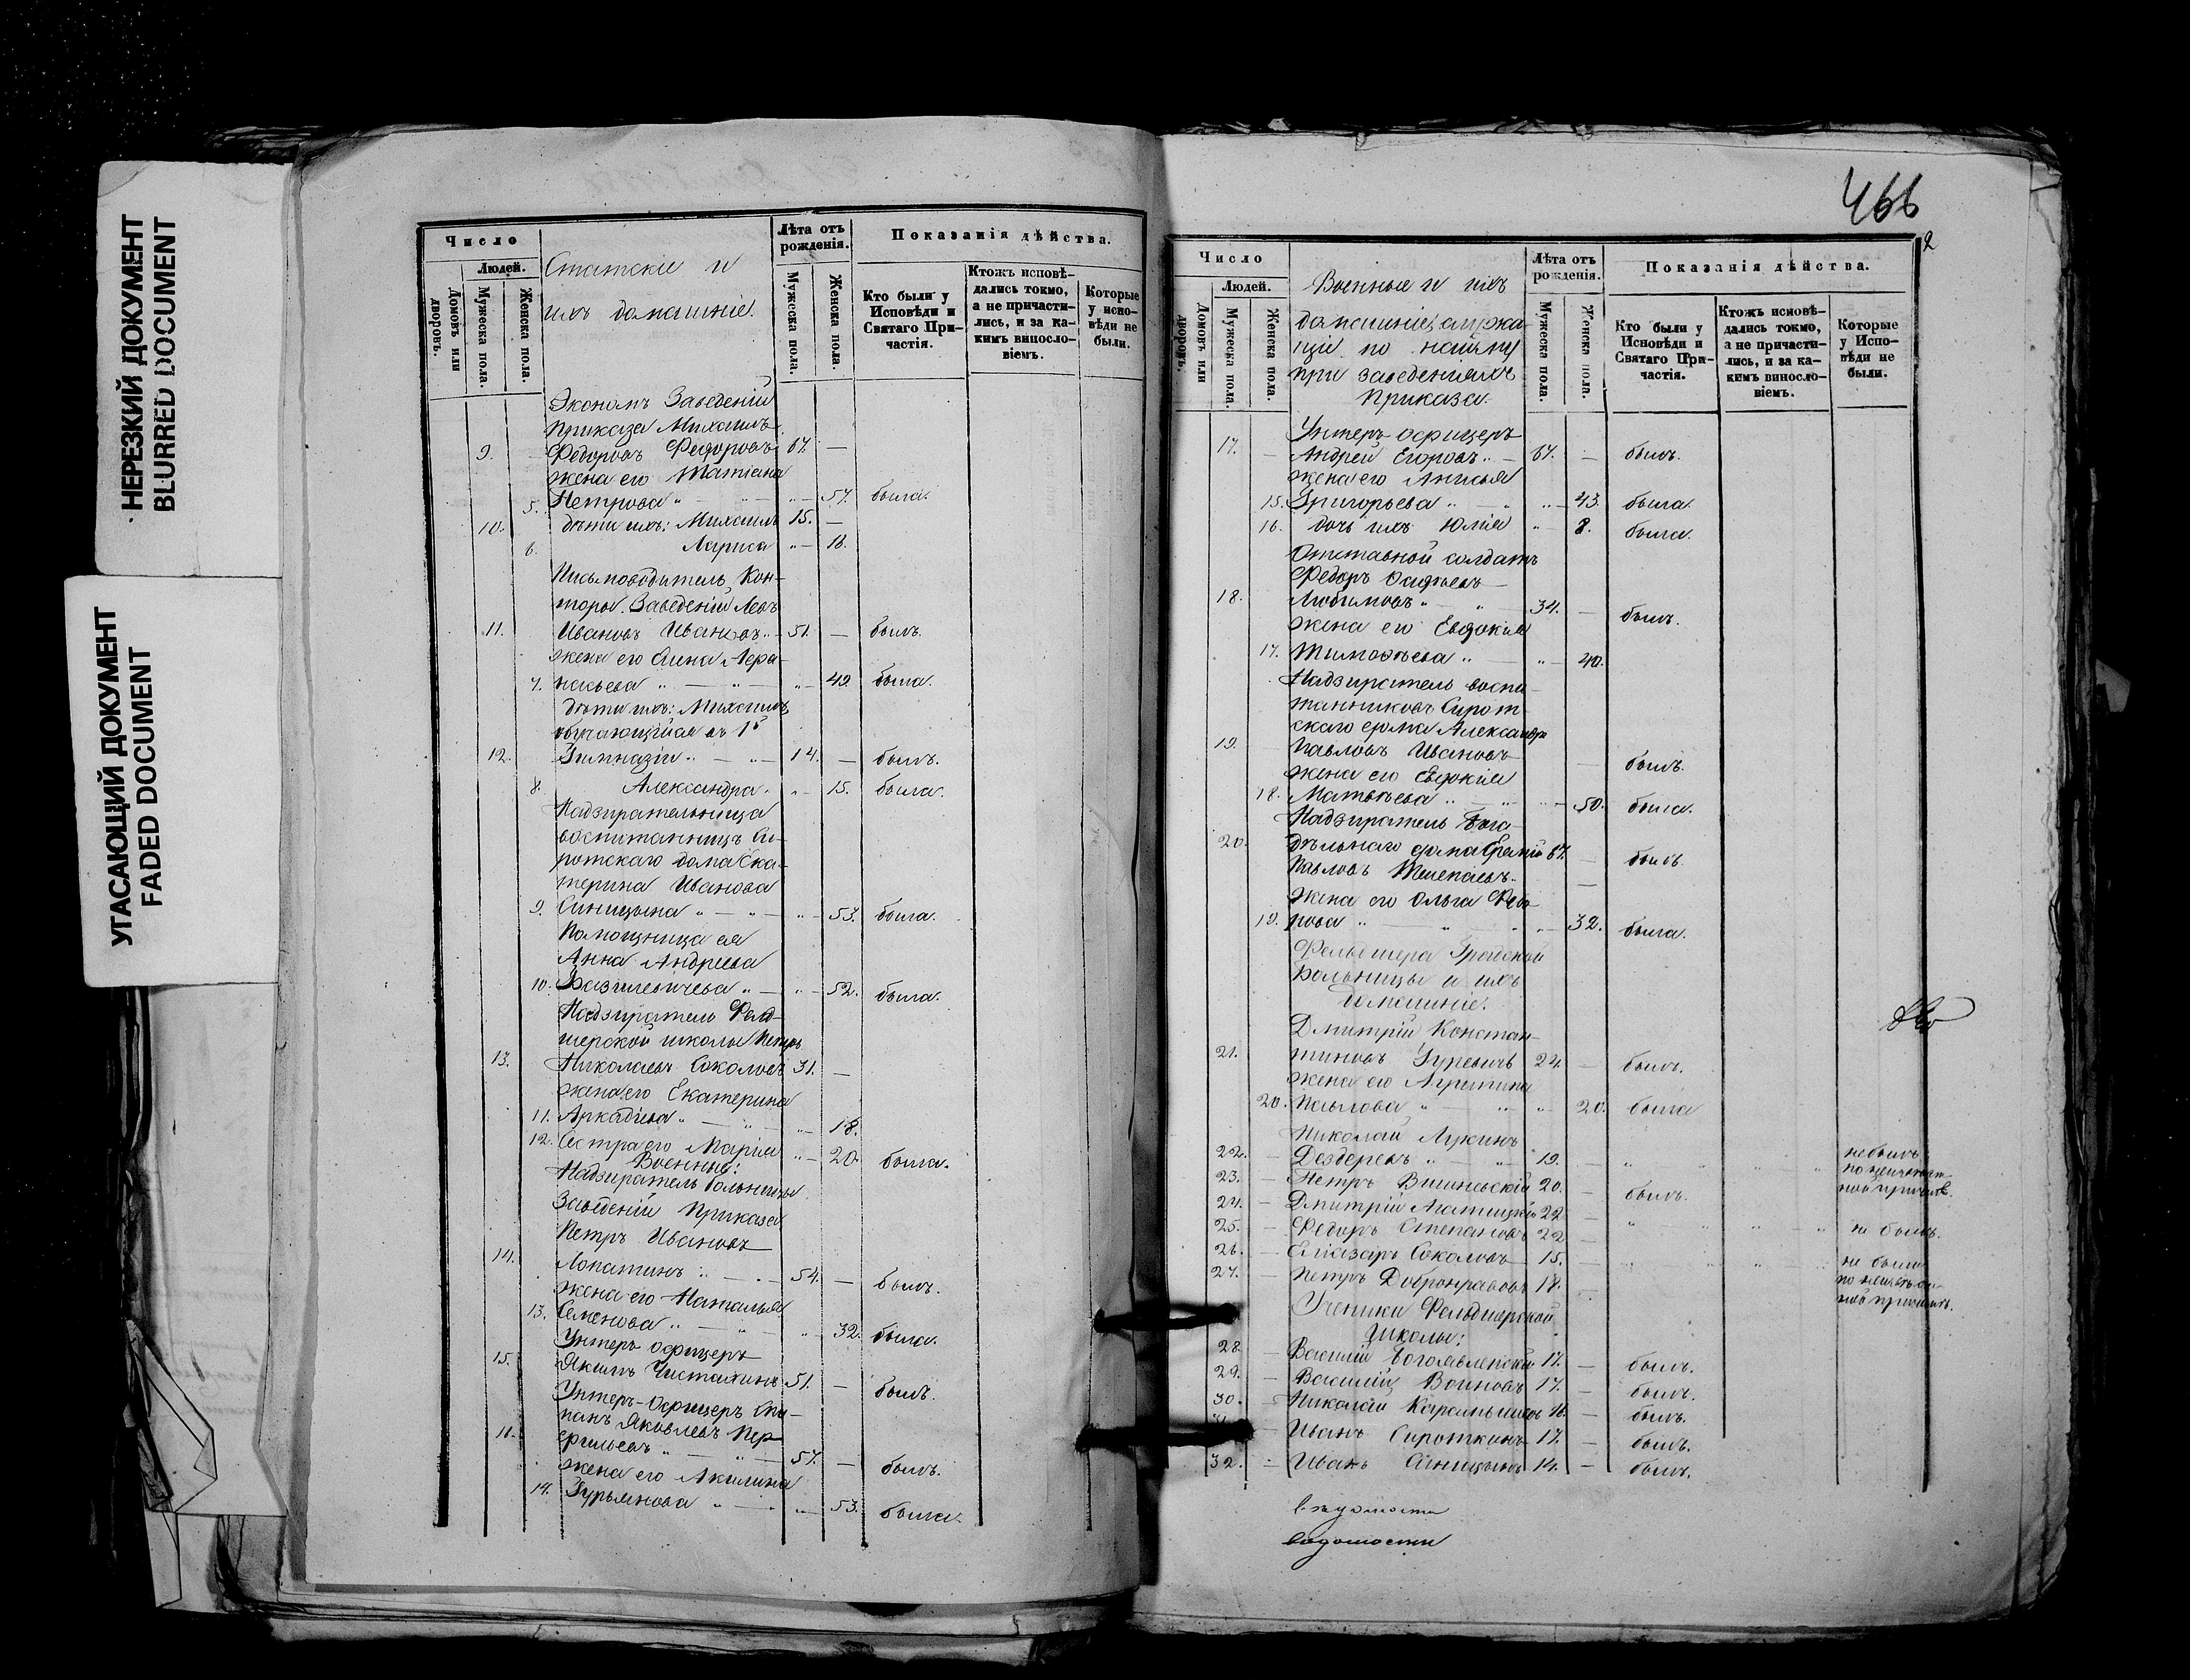 НЕРЕЗКИЙ ДОКУМЕНТ
BLURRED DOCUMENT
УГАСАЮЩИЙ ДОКУМЕНТ
FADED DOCUMENT
Число
Людей.
Домовъ или дворовъ.
Мужеска пола.
Женска пола.
Статскіе и
ихъ домашніе.
Лѣта отъ рожденія.
Мужеска пола.
Женска пола.
Показанія дѣйства.
Кто были у Исповѣди и Святаго Причастія.
Ктожъ исповѣдались токмо, а не причастились, и за какимъ винословіемъ.
Которые у исповѣди не были.
Экономъ Заведеній
Приказа Михаилъ
9. Федоровъ Федоровъ 67. —
жена его Татіана
5. Петрова " — " — 57. была.
10. дѣти ихъ: Михаилъ 15. —
6. Лариса " — 18.
Письмоводитель Кон-
торы Заведеній Левъ
11. Ивановъ Ивановъ " — 51. — былъ.
жена его Анна Гера-
7. " — " — 49. была.
дѣти ихъ: Михаилъ
обучающійся въ 1й
12. Гимназіи " — " — 14. — былъ.
8. Александра " — 15. была.
Надзирательница
воспитанницъ Си-
ротскаго дома Ека-
терина Иванова
9. Синицына " — " — 53. была.
Помощница ея
Анна Андреева
10. Базилевичева " — " — 52. была.
Надзиратель Фельд-
шерской школы Петръ
13. Николаевъ Соколовъ 31. —
жена его Екатерина
11. Аркадіева " — " — 18.
12. Сестра его Марія " — 20. была.
Военные:
Надзиратель больницы
Заведеній Приказа
Петръ Ивановъ
14. Лопатинъ " — " — 54. — былъ.
жена его Наталья
13. Семенова " — " — 32. была.
Унтеръ офицеръ
15. Якимъ Чистякинъ 51. — былъ.
Унтеръ-Офицеръ Сте-
панъ Яковлевъ Пер-
16. " — " — 57. — былъ.
жена его Акилина
14. Гурьянова " — " — 53. была.
466
2
Число
Людей.
Домовъ или дворовъ.
Мужеска пола.
Женска пола.
Военные и ихъ
домашніе, служа-
щіе по найму
при заведеніяхъ
Приказа.
Лѣта отъ рожденія.
Мужеска пола.
Женска пола.
Показанія дѣйства.
Кто были у Исповѣди и Святаго Причастія.
Ктожъ исповѣдались токмо, а не причастились, и за какимъ винословіемъ.
Которые у Исповѣди не были.
Унтеръ офицеръ
17. — Андрей Егоровъ " — 67. — былъ.
жена его Анисья
15. Григорьева " — " — 43. была.
16. дочь ихъ Юлія " — 8. была.
Отставной солдатъ
Федоръ
18. Любимовъ " — " 34. — былъ.
жена его Евдокія
17. Тимофѣева " — " — 40.
Надзиратель воспи-
танниковъ Сирот-
скаго дома Александръ
19. Павловъ Ивановъ — былъ.
жена его Евдокія
18. Матвѣева " — " — 50. была.
Надзиратель Бога-
20. дѣльнаго дома 67. — былъ.
Павловъ —
жена его Ольга Федо-
19. рова " — " — 32. была.
Фельдшера Градской
Больницы и ихъ
домашніе.
Дмитрій Констан-
21. тиновъ Гуревичъ 24. — былъ.
жена его Агрипина
20. Павлова " — " — 20. была
Николай Лукинъ
22. — " — " 19. — не былъ
23. — Петръ Вишневскій 20. — былъ.
24. — Дмитрій 22. —
25. — Федоръ Степановъ 22 — не былъ.
26. — Елиазаръ Соколовъ 15. — не были
27. — Петръ Добронравовъ 18. —
Ученики Фельдшерской
школы:
28. — Василій Богоявленскій 17. — былъ.
29. — Василій Воиновъ 17. — былъ.
30. — Николай 16. — былъ.
Иванъ Сироткинъ 17. — былъ.
32. — Иванъ Синицынъ 14. — былъ.